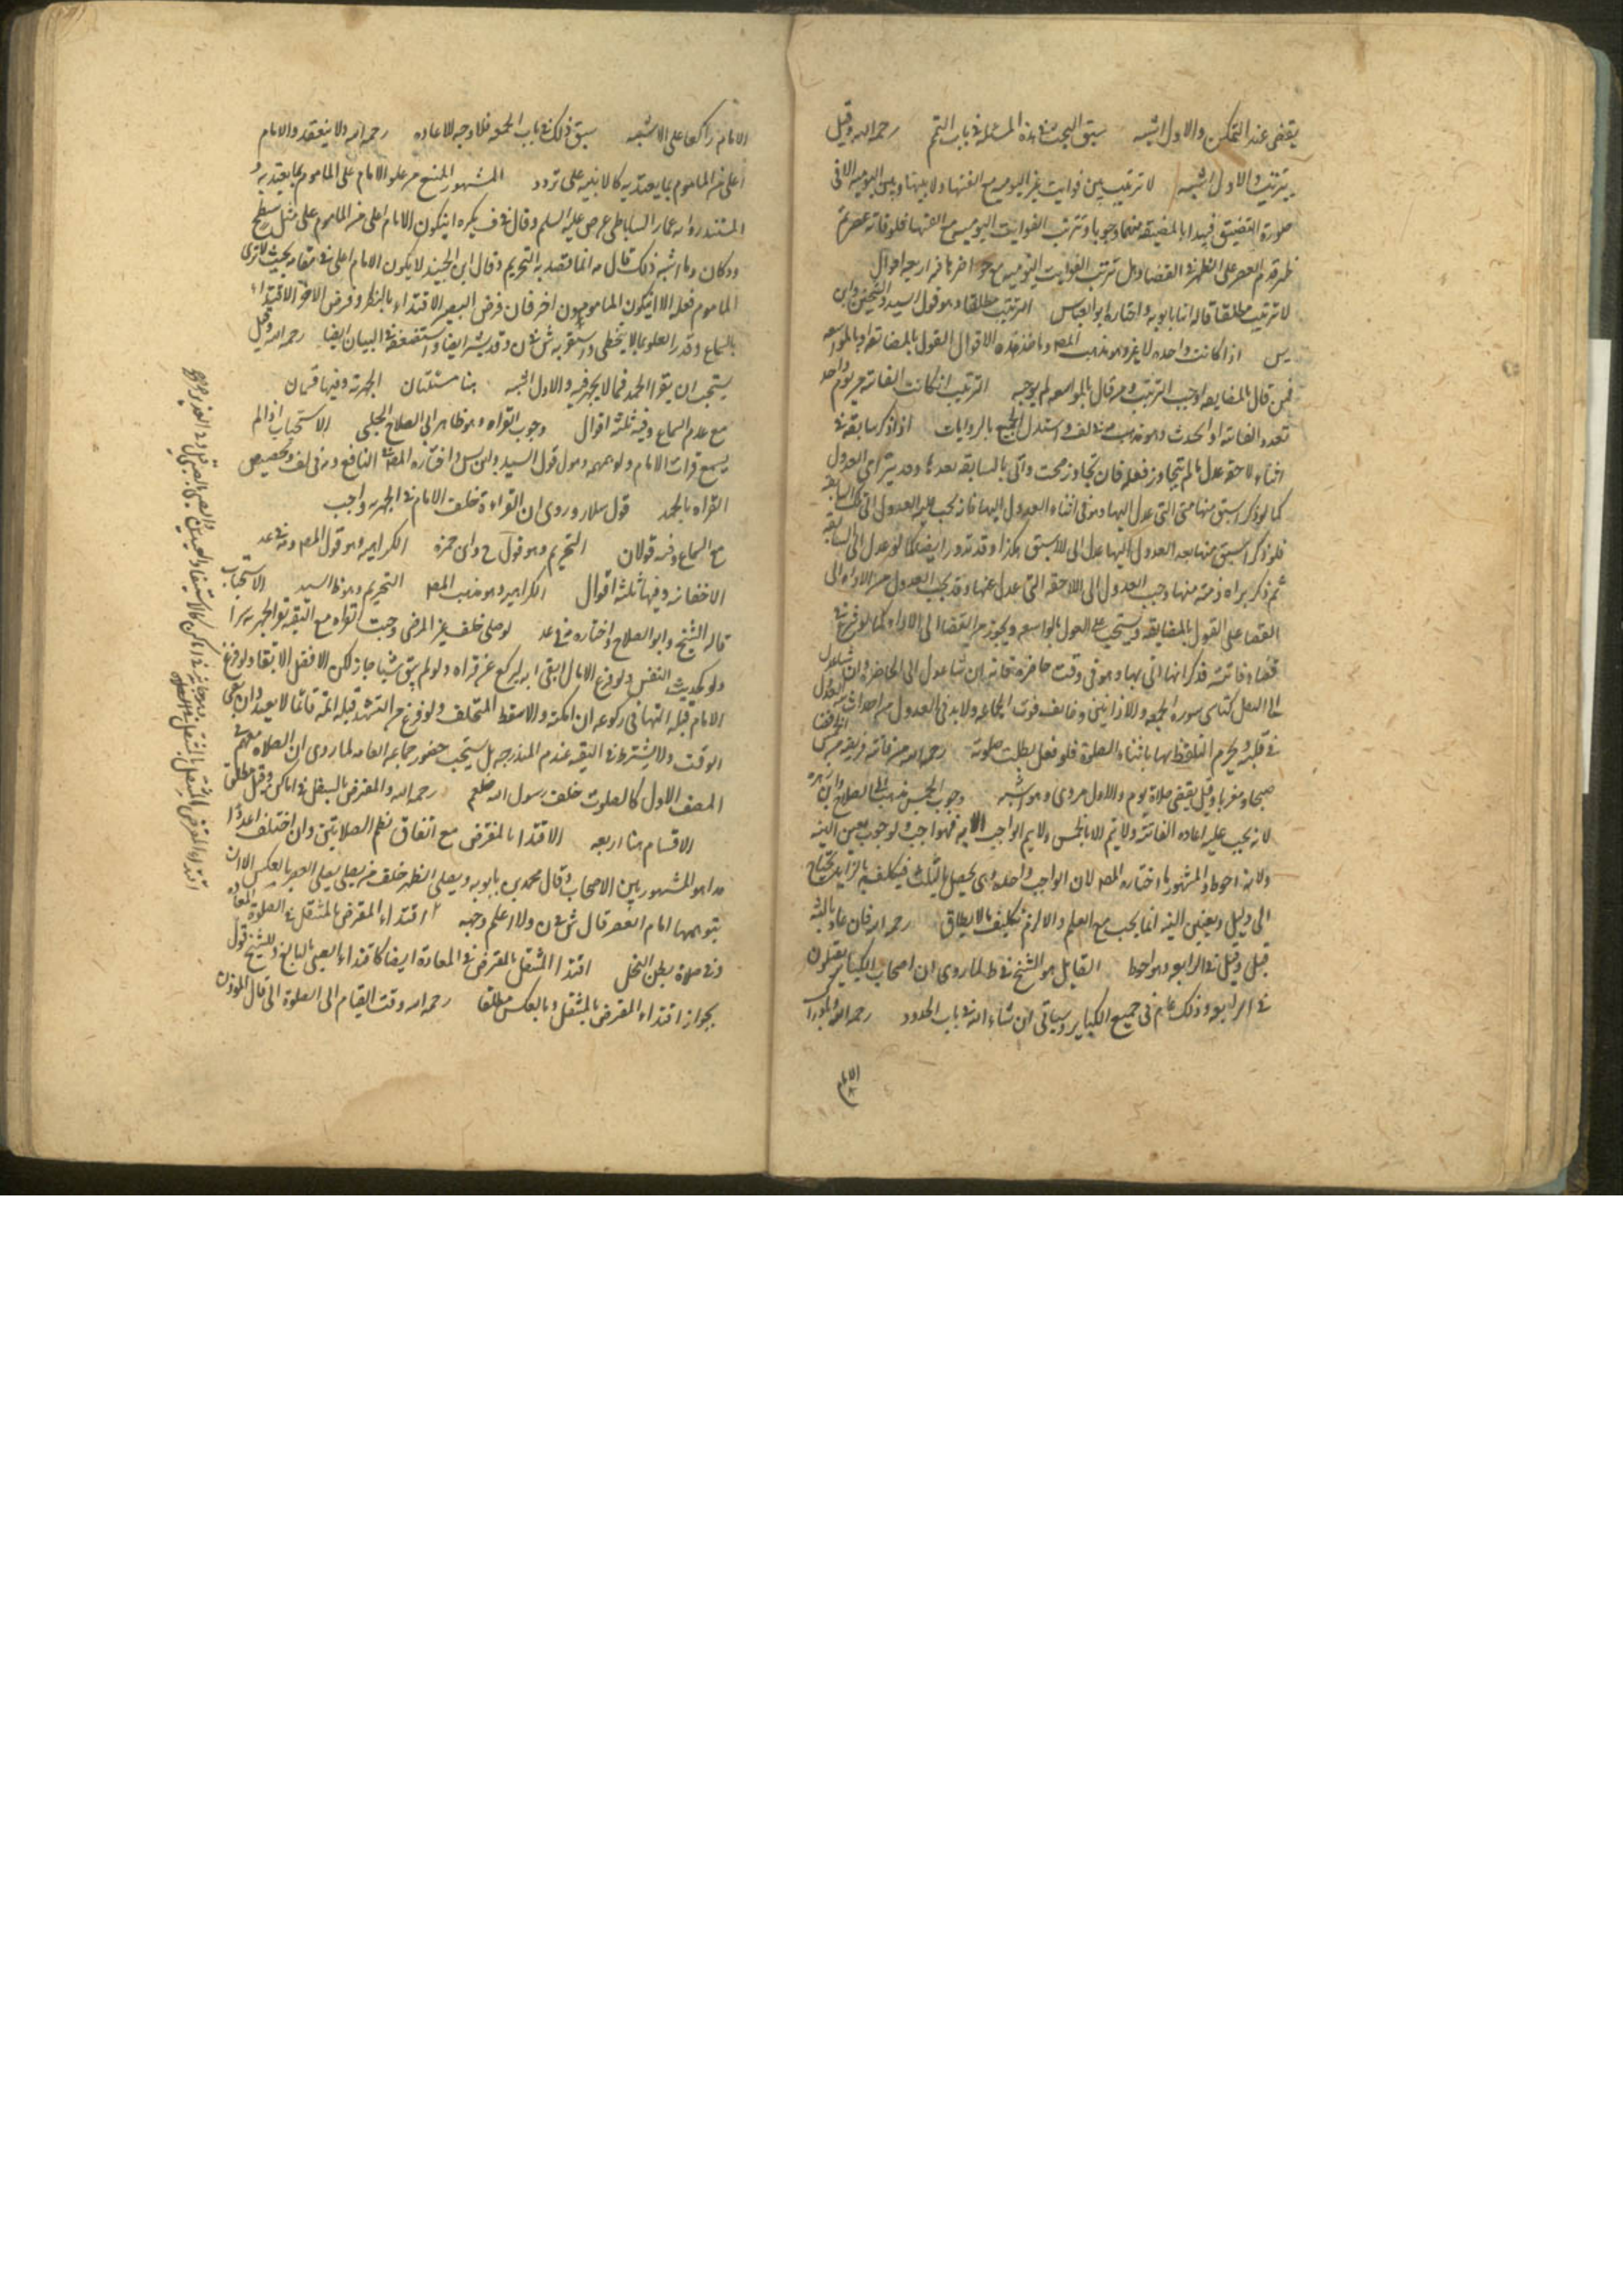 يقضى عند التمكن والاول اشبه سبق البحث في هذه المسئلة في باب التيمم رحمه الله وقيل
يترتب والاول اشبه لا ترتيب بين فوايت غير اليوميه مع الفتها ولا بينها وبين اليوميه الا في
صورة التضيق فيبدا بالمضيقه منهما وجوبا وترتب الفوايت اليوميه مع الفتها فلو فاته عصر ثم
ظهر قدم العصر على الظهر في القضا وهل ترتب الفوايت اليوميه مع حواضرها فيه اربعة اقوال
لا ترتيب مطلقا قاله ابنا بابويه واختاره ابو العباس الترتيب مطلقا وهو قول السيد والشيخين وابن
يس اذا كانت واحده لا غير وهو مذهب المصـ وماخذ هذه الاقوال القول بالمضايقه او بالمواسعه
فمن قال بالمضايقه اوجب الترتيب ومن قال بالمواسعه لم يوجبه الترتيب ان كانت الفائته من يوم واحد
تعدد الفائته او اتحدت وهو مذهب في لف واستدل الجميع بالروايات اذا ذكر سابقه في
اثناء لاحقه عدل ما لم يتجاوز فعله فان تجاوز صحت واتى بالسابقه بعدها وقد يترامى العدول
كما لو ذكر اسبق منها متى التي عدل اليها وهو في اثناء العدول اليها فانه يجب عليه العدول الى تلك السابقه
فلو ذكر اسبق منها بعد العدول اليها عدل الى الاسبق هكذا وقد تدور ايضا كما لو عدل الى السابقه
ثم ذكر براه ذمته منها وجب العدول الى اللاحقه التي عدل عنها وقد يجب العدول من الاداء الى
القضا على القول بالمضايقه ويستحب على القول بالمواسعه ويجوز من القضا الى الاداء كما لو شرع في
قضاء فائته فذكر انها اتى بها وهو في وقت حاضره فانه ان شا عدل الى الحاضره وان شا عدل
الى النفل كناسي سوره الجمعه والاذانين وخايف فوت الجماعه ولا بد في العدول من احداث نيه العدول
في قلبه ويحرم التلفظ بها باثناء الصلوة فلو فعل بطلت صلوته رحمه الله من فاته فريضه من الخمس
صبحا ومغربا وقيل يقضى صلاة يوم والاول مروي وهو اشبه وجوب الخمس مذهب ابي الصلاح وابن زهره
لانه يجب عليه اعاده الفائته ولا يتم الا بالخمس ولا يتم الواجب الا به فهو واجب ولوجوب تعيين النيه
ولانه احوط والمشهور ما اختاره المصـ لان الواجب واحده وهي تحصل بالثلث فتكلف بالزايد يحتاج
الى دليل وتعيين النيه انما يجب مع العلم والا لزم تكليف ما لا يطاق رحمه الله فان عاد ثالثه
قتل وقيل في الرابعه وهو احوط القايل هو الشيخ في ط لما روي ان اصحاب الكباير يقتلون
في الرابعه وذلك عام في جميع الكباير وسياتي ان شاء الله في باب الحدود رحمه الله
الامام
الامام راكعا على الاشبه سبق ذلك في باب الجمعه فلا وجه للاعاده رحمه الله ولا ينعقد والامام
اعلى من الماموم بما يعتد به كالابنيه على تردد المشهور المنع من علو الامام على الماموم بما يعتد به
المستند روايه عمار الساباطي عن ص عليه السلم وقال في ف يكره ان يكون الامام اعلى من الماموم على مثل سطح
ودكان وما اشبه ذلك قال انما قصد به التحريم وقال ابن الجنيد لا يكون الامام اعلى في مقامه بحيث لا يرى
الماموم فعله الا ان يكون المامومون اضر فان فرض البصير الاقتداء بالنظر وفرض الاضر الاقتداء
بالسماع وقدر العلو بما لا يتخطى واستقربه ش في ن وقدر بشبر ايضا واستضعفه في البيان ايضا رحمه الله وقيل
يستحب ان يقرا الحمد فيما لا يجهر فيه والاول اشبه هنا مسئلتان الجهريه وفيها قسمان
مع عدم السماع وفيه ثلثة اقوال وجوب القراه وهو ظاهر ابي الصلاح الحلبي الاستحباب اذا لم
يسمع قرات الامام ولو همهمه وهو قول السيد وابن س واختاره المصـ في النافع وفي لف وتخصيص
القراه بالحمد قول سلار وروى ان القراءة خلف الامام في الجهريه واجب
مع السماع وفيه قولان التحريم وهو قول الشيخ وابن حمزه الكراهيه وهو قول المصـ وفي عد
الاخفاتيه وفيها ثلثة اقوال الكراهيه وهو مذهب المصـ التحريم وهو ظ السيد الاستحباب
قاله الشيخ وابو الصلاح واختاره في عد لو صلى خلف غير المرضي وجبت القراه مع التقيه تقرا الجهريه سرا
ولو كحديث النفس ولو فرغ الامام ابقى ايه ليركع عن قراه ولو لم يبق شيئا جاز لكن الافضل الابقا ولو فرغ
الامام قبله اتمها في ركوعه ان امكنه والا سقط المتخلف ولو فرغ من التشهد قبله اتمه قائما لا يعيد وان بقي
الوقت ولا يشترط في التقيه عدم المندوحه بل يستحب حضور جماعه العامه لما روي ان الصلاه معهم في
الصف الاول كالصلوت خلف رسول الله صلعم رحمه الله والمفترض بالمتنفل في اماكن وقيل مطلقا
الاقسام هنا اربعه الاقتدا بالمفترض مع اتفاق نظم الصلاتين وان اختلف اعدوا
هذا هو المشهور بين الاصحاب وقال محمد بن بابويه ويصلي الظهر خلف من يصلي العصر بالعكس الا ان
يتوهمها امام العصر قال ش في ن ولا اعلم وجهه اقتداء المفترض بالمتنفل في الصلوة المعاده
وفي صلاة بطن النخل اقتدا المتنفل بالمفترض في المعادة ايضا كاقتداء الصبي بالبالغ وللشيخ قول
بجواز اقتداء المفترض بالمتنفل وبالعكس مطلقا رحمه الله وقت القيام الى الصلوة اذا قال المؤذن